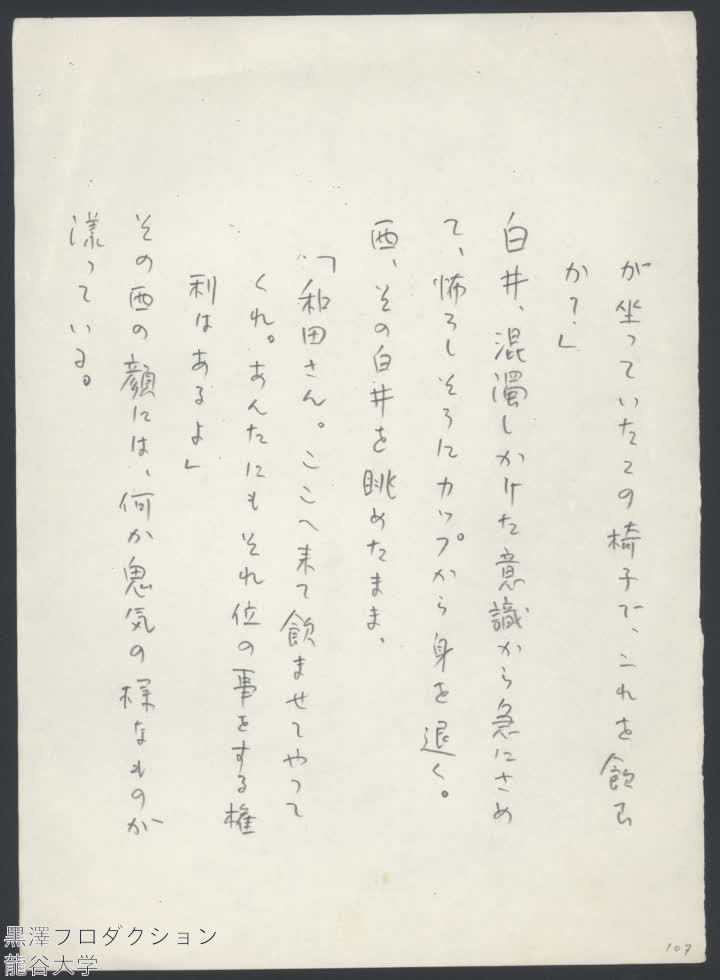 が坐っていたこの椅子で、これを飲む
か？」
白井、混濁しかけた意識から急にさめ
て、怖ろしそうにカップから身を退く。
西、その白井を眺めたまま、
「和田さん。ここへ来て飲ませてやって
くれ。あんたにもそれ位の事をする権
利はあるよ」
その西の顔には、何か鬼気の様なものが
漾っている。
107
黒澤プロダクション
龍谷大学